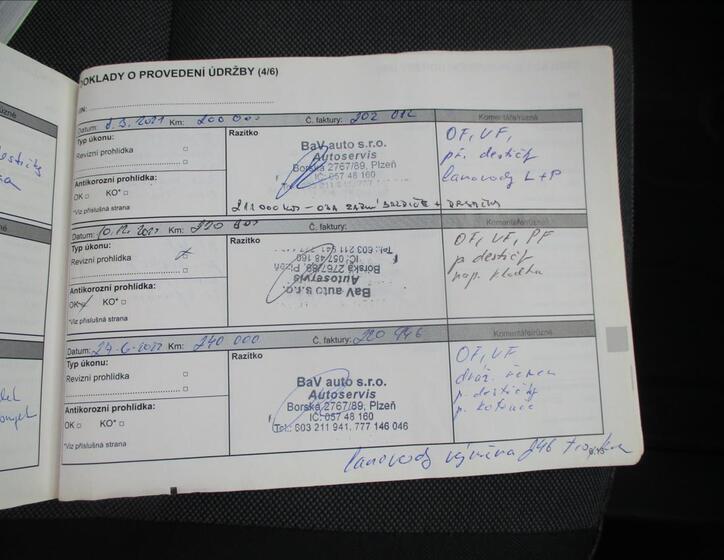 DOKLADY O PROVEDENÍ ÚDRŽBY (4/6)
Datum: 8.3.2021 Km: 200 000 Č. faktury: 202 012 Komentáře/různé
Typ úkonu:
Revizní prohlídka
Antikorozní prohlídka:
OK KO*
*Viz příslušná strana
Razítko
BaV auto s.r.o.
Autoservis
Borská 2767/89, Plzeň
IČ: 057 48 160
OF, VF,
př. destičky
lanovody L+P
211 000 km - OBA ZADNÍ
Datum: Km: 220 000 Č. faktury:
Typ úkonu:
Revizní prohlídka
Antikorozní prohlídka:
OK KO*
*Viz příslušná strana
Razítko
BaV auto s.r.o.
Autoservis
Borská 2767/89, Plzeň
IČ: 057 48 160
Tel.: 603 211
OF, VF, PF
p. destičky
nap. kladka
Datum: 24-6-2022 Km: 240 000 Č. faktury: 220 446 Komentáře/různé
Typ úkonu:
Revizní prohlídka
Antikorozní prohlídka:
OK KO*
*Viz příslušná strana
Razítko
BaV auto s.r.o.
Autoservis
Borská 2767/89, Plzeň
IČ: 057 48 160
Tel.: 603 211 941, 777 146 046
OF, VF
dráž. řemen
p. destičky
p. kotouče
lanovody výměna 246